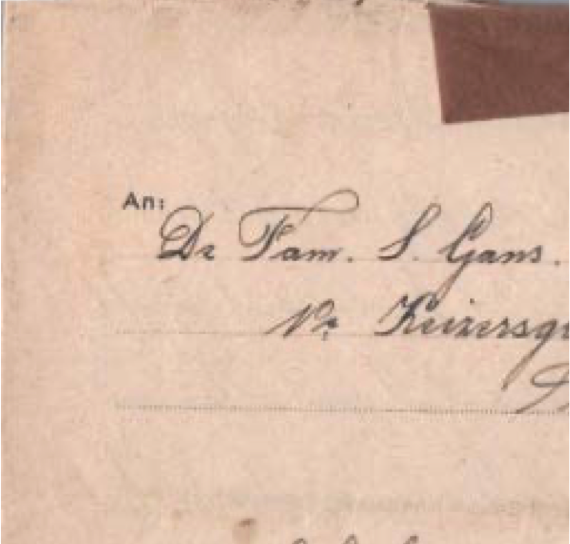 An:
De Fam. S. Gans.
Nr. Keizersgr